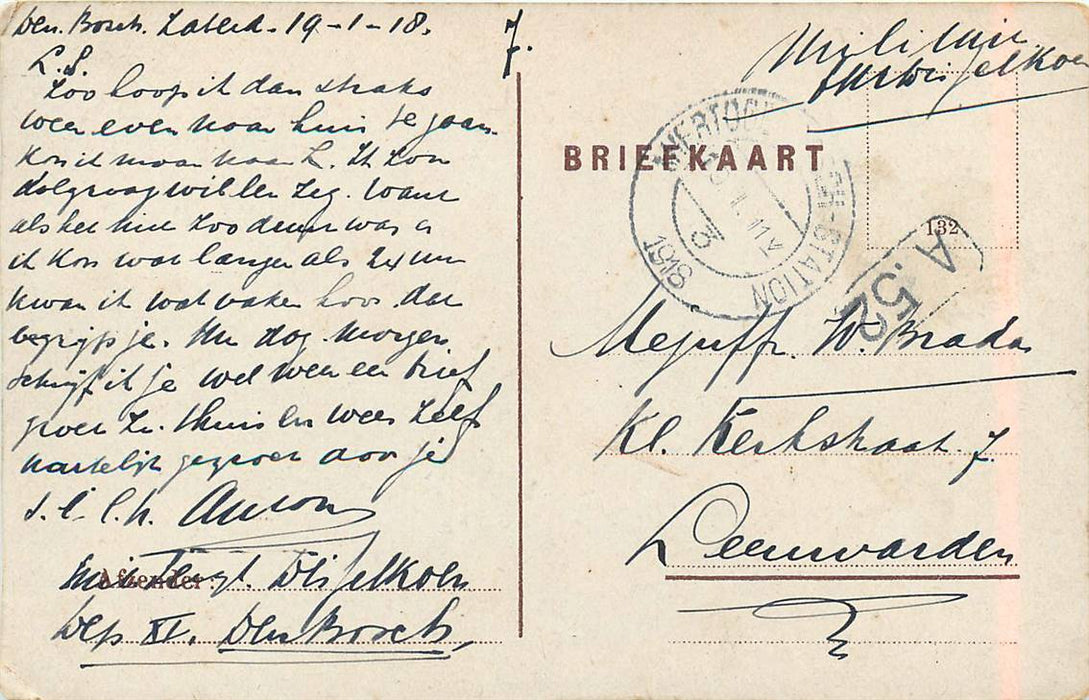 Den. Bosch. 19-1-18.
7.
L. S.
Zoo hoop ik dan straks
weer even naar huis te gaan.
Kon ik maar naar L. Ik zou
dolgraag willen zeg. Want
als het niet zoo duur was
ik kon wat langer als uur
kwam ik wat vaker hoor dat
begrijp je. Nu dag Morgen
schrijf ik je wel weer een brief
groet thuis en wees zelf
hartelijk gegroet door je
Anton
Afzender:
Sergt.
Dep XI. Den Bosch,
Militair
BRIEFKAART
HERTOGENBOSCH-STATION
1918
132
A.52
Mejuffr. W. Brada
Kl. Kerkstraat 7.
Leeuwarden